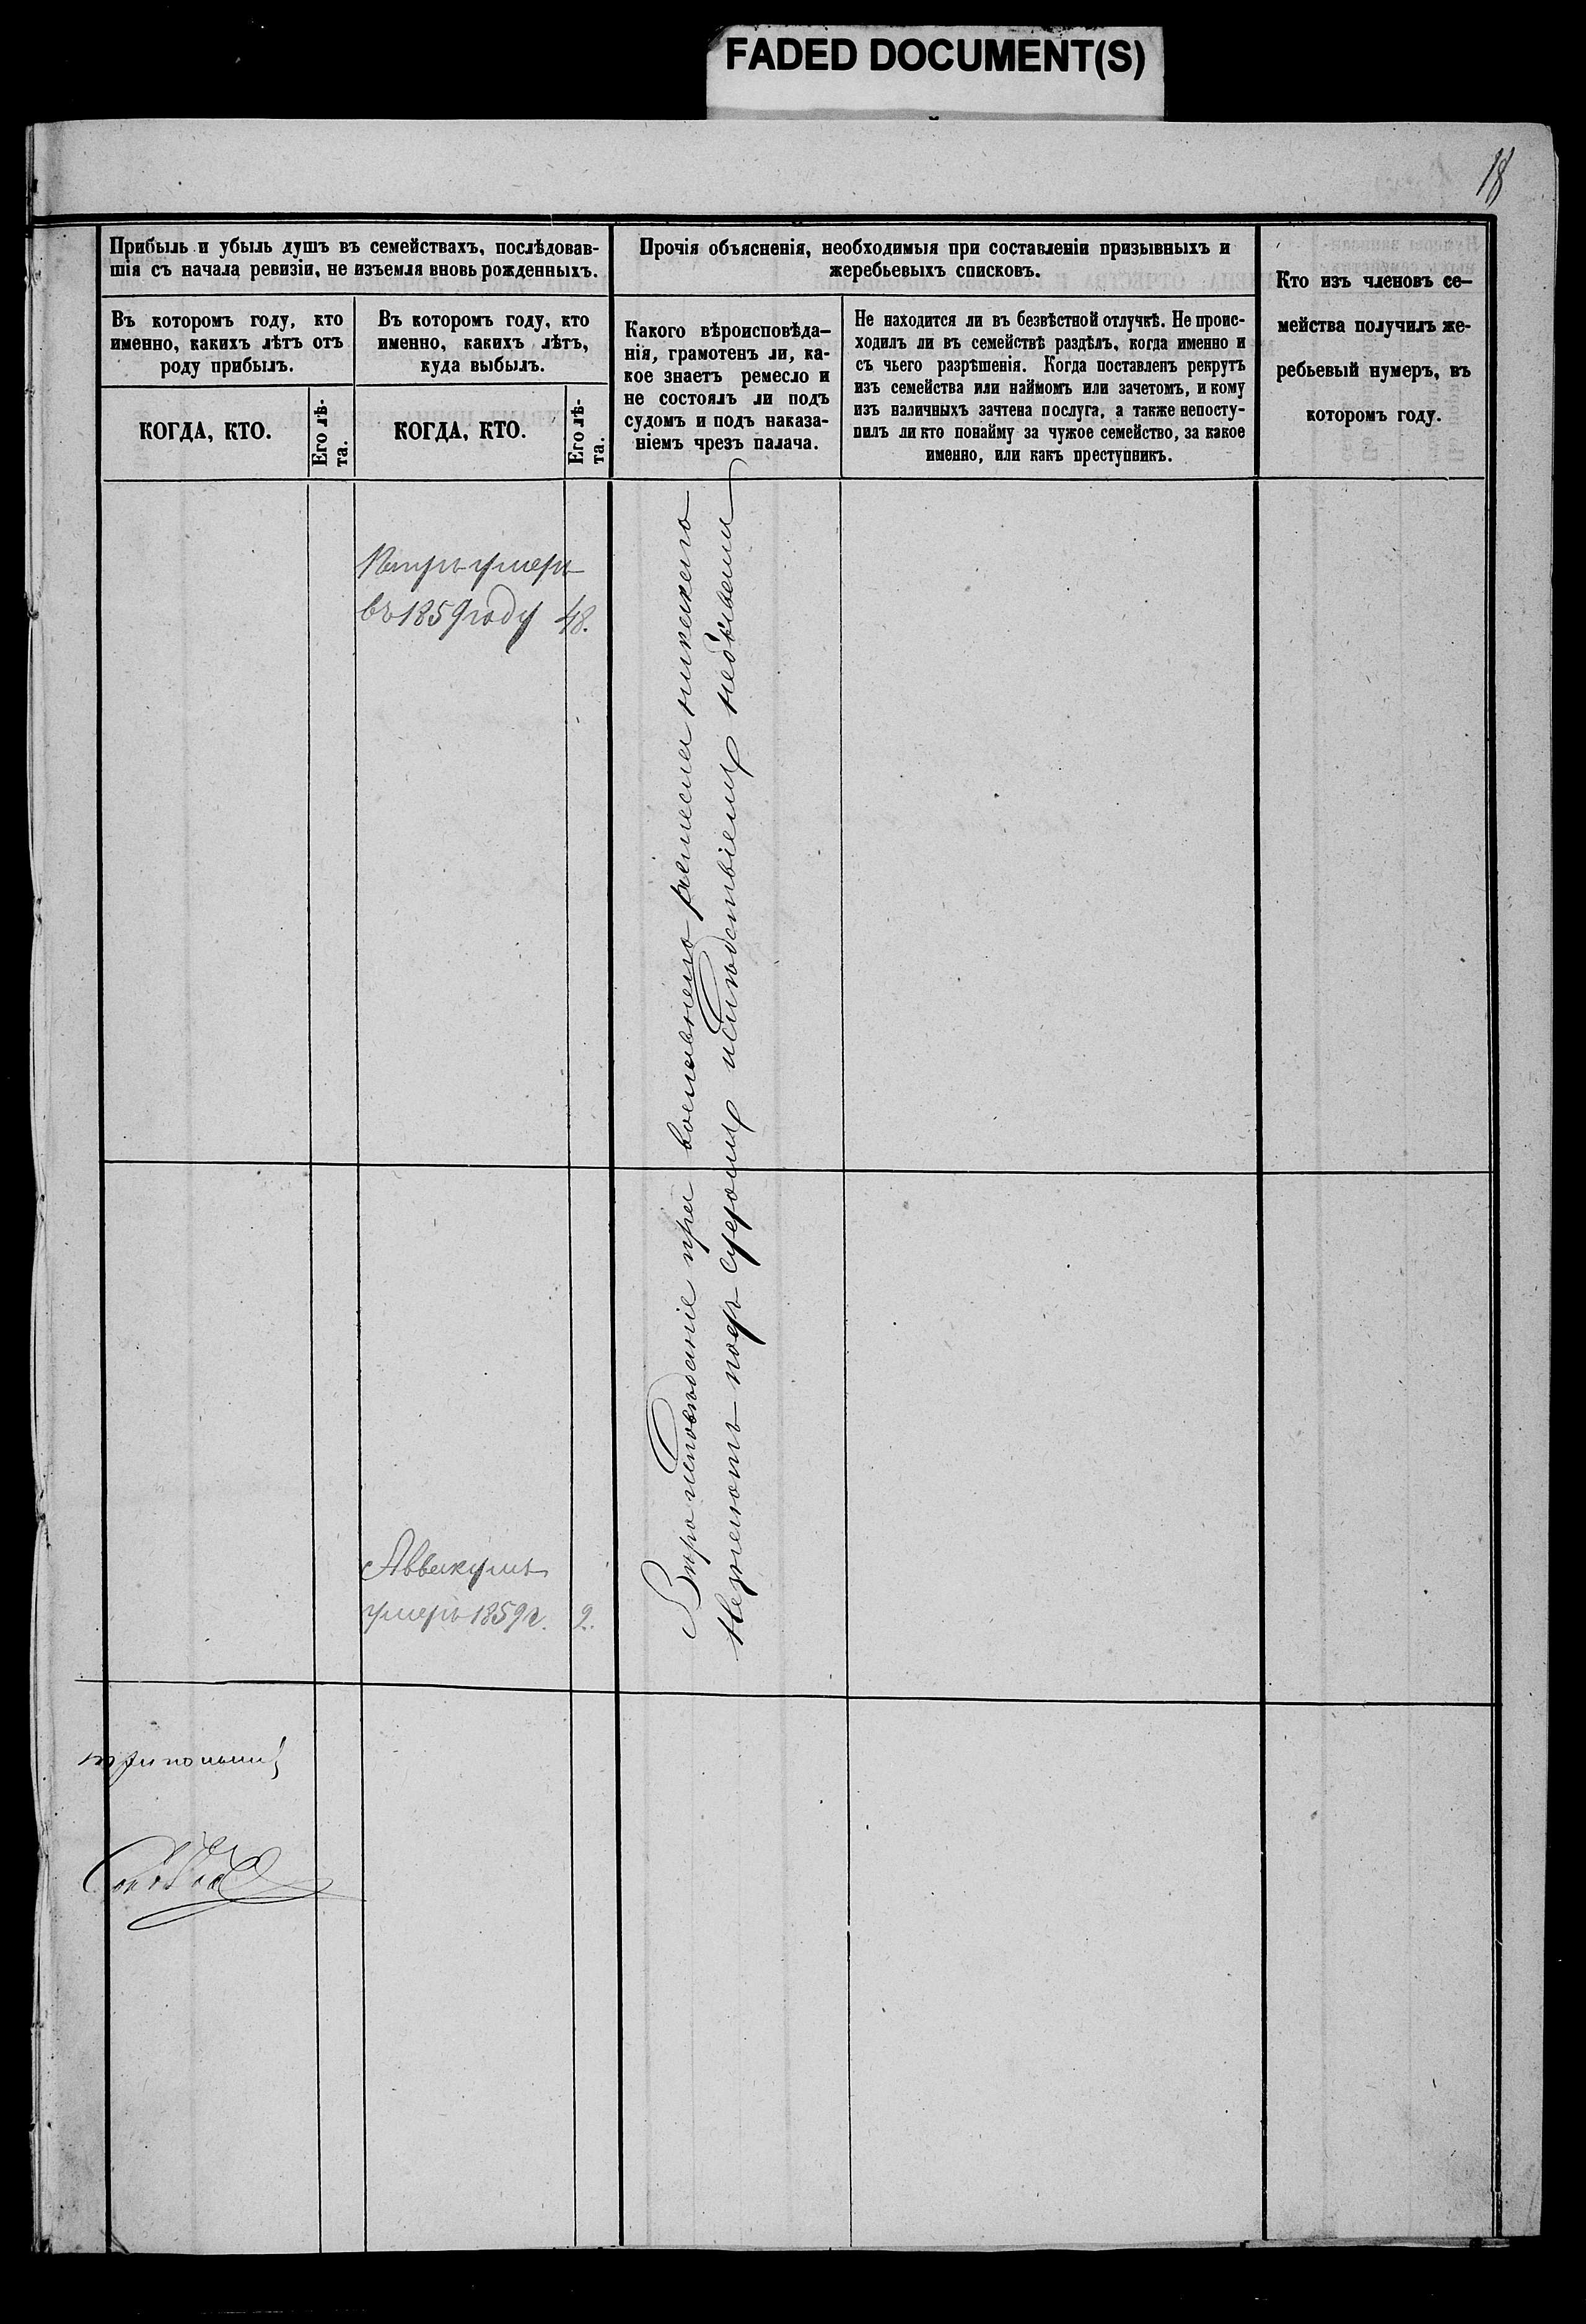 FADED DOCUMENT(S)
18
Прибыль и убыль душъ въ семействахъ, послѣдовав-
шія съ начала ревизіи, не изъемля вновь рожденныхъ.
Въ которомъ году, кто
именно, какихъ лѣтъ отъ
роду прибылъ.
КОГДА, КТО.
Его лѣ-
та.
Въ которомъ году, кто
именно, какихъ лѣтъ,
куда выбылъ.
КОГДА, КТО.
Его лѣ-
та.
Прочія объясненія, необходимыя при составленіи призывныхъ и
жеребьевыхъ списковъ.
Какого вѣроисповѣда-
нія, грамотенъ ли, ка-
кое знаетъ ремесло и
не состоялъ ли подъ
судомъ и подъ наказа-
ніемъ чрезъ палача.
Не находится ли въ безвѣстной отлучкѣ. Не проис-
ходилъ ли въ семействѣ раздѣлъ, когда именно и
съ чьего разрѣшенія. Когда поставленъ рекрутъ
изъ семейства или наймомъ или зачетомъ, и кому
изъ наличныхъ зачтена послуга, а также непосту-
пилъ ли кто понайму за чужое семейство, за какое
именно, или какъ преступникъ.
Кто изъ членовъ се-
мейства получилъ же-
ребьевый нумеръ, въ
которомъ году.
Петръ умеръ
въ 1859 году 48.
Аввакумъ
умеръ 1859 г. 9.
Вероисповѣданіе пра вославнаго ремесла никакого
Незнаютъ подъ судомъ ислѣдствіемъ небывали